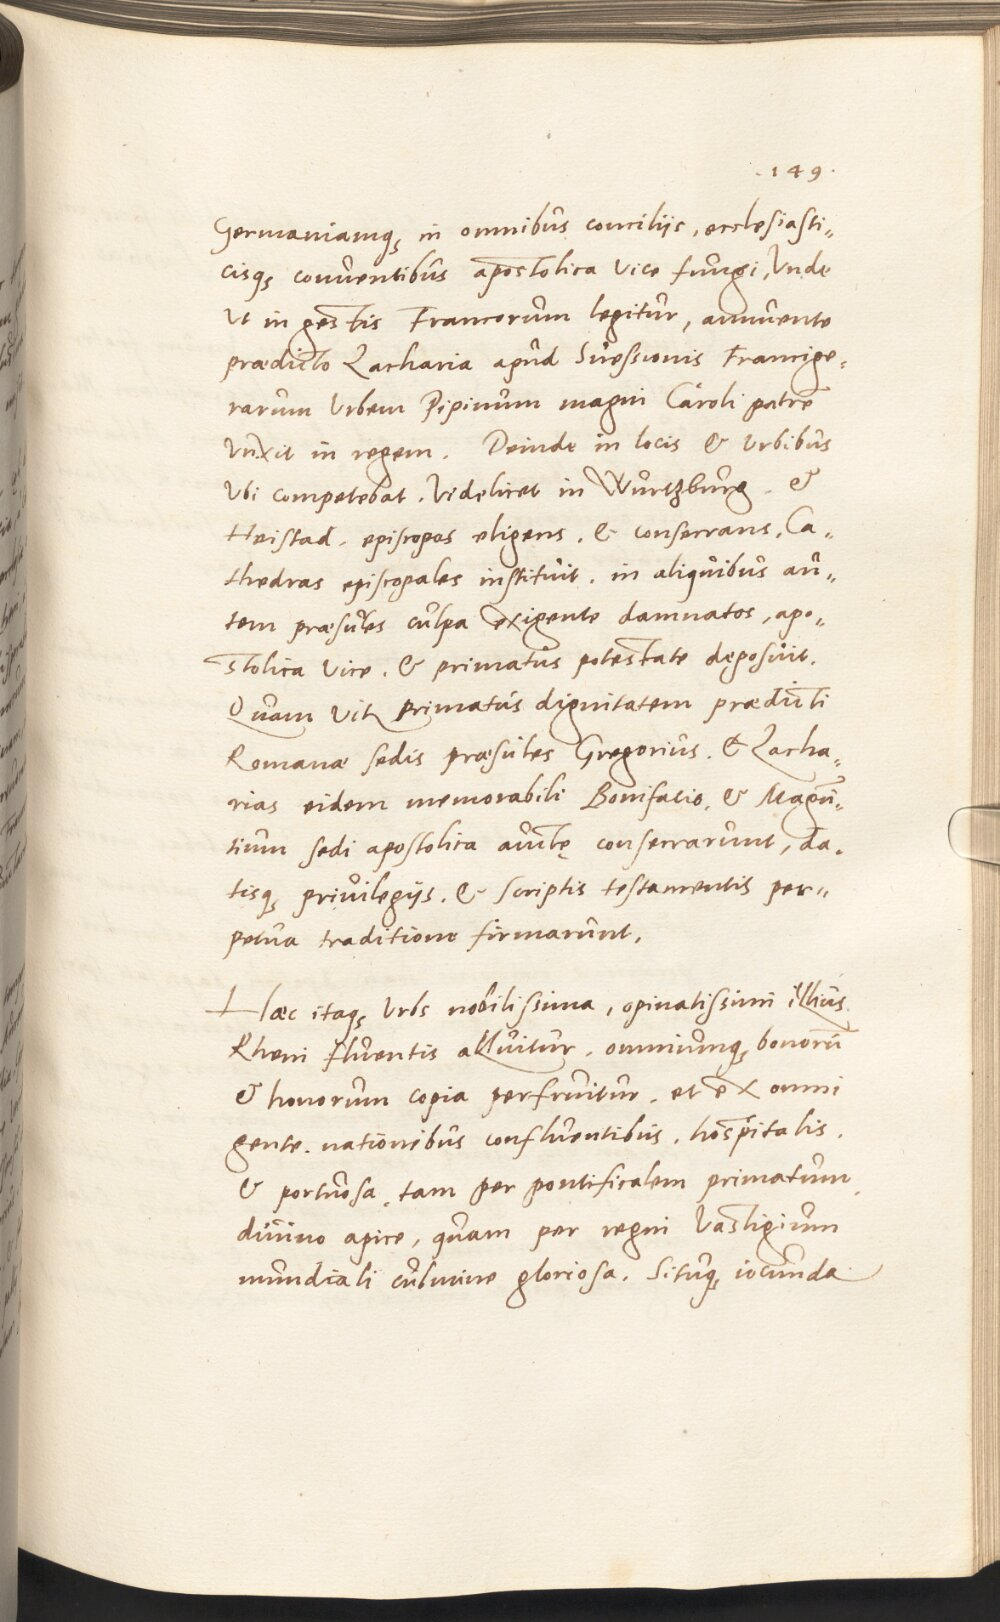 .149.
Germaniamq; in omnibus concilijs, ecclesiasti„
cisq; conventibus apostolica vice fungi, Vnde
Vt in gestis Francorum legitur, annuente
prædicto Zacharia apud Suessionis Francige„
rarum Vrbem Pipinum magni Caroli patrē
Vnxit in regem. Deinde in locis & Vrbibus
Vbi competebat. Videlicet in Wurtzburg. &
Heistad. episcopos eligens. & consecrans, Ca„
thedras episcopales instituit. in aliquibus au„
tem præsules culpa exigente damnatos, apo„
stolica vice. & primatus potestate deposuit.
Quam primatus dignitatem prædicti
Romanæ sedis præsules Gregorius. & Zacha„
rias eidem memorabili Bonifacio. & Magūn„
tium sedi apostolica consecrarunt, da„
tisq; privilegijs. & scriptis testamentis per„
petua traditione firmarunt.
Hæc itaq; Vrbs nobilissima, opinatissimi illius
Rheni fluentis alluitur. omniumq; bonorū
& honorum copia perfruitur. et ex omni
gente. nationibus confluentibus. hospitalis.
& portuosa, tam per pontificalem primatum
divino apice, quam per regni Vastigium
mundiali culmine gloriosa. Situq; iocunda